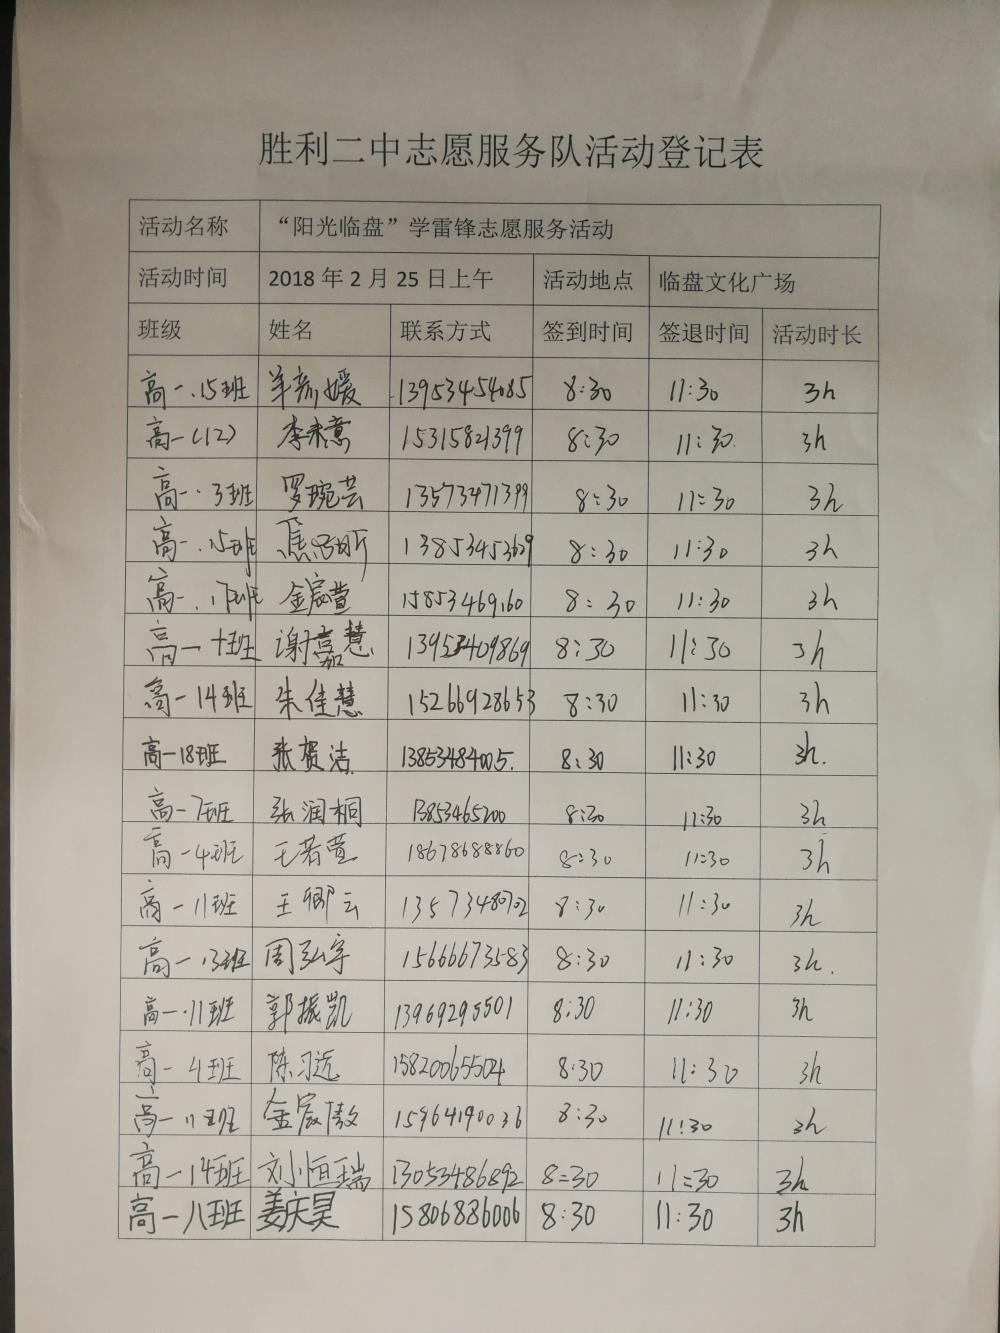 胜利二中志愿服务队活动登记表
活动名称 “阳光临盘”学雷锋志愿服务活动
活动时间 2018年2月25日上午 活动地点 临盘文化广场
班级 姓名 联系方式 签到时间 签退时间 活动时长
高一.15班 羊彦媛 13953454085 8:30 11:30 3h
高一(12) 李来熹 15315821399 8:30 11:30 3h
高一.3班 罗琬芸 13573471399 8:30 11:30 3h
高一.15班 8:30 11:30 3h
高一.17班 金宸萱 15853469160 8:30 11:30 3h
高一十班 谢嘉慧 13953409869 8:30 11:30 3h
高一14班 朱佳慧 15266928653 8:30 11:30 3h
高一18班 张贺洁 13853484005. 8:30 11:30 3h.
高一7班 张润桐 13853465200 8:30 11:30 3h
高一4班 王若萱 18678688860 8:30 11:30 3h
高一11班 王卿云 13573480702 8:30 11:30 3h
高一.13班 周弘宇 15666673583 8:30 11:30 3h.
高一.11班 郭振凯 13969295501 8:30 11:30 3h
高一4班 陈习远 15820065504 8:30 11:30 3h
高一11班 金宸傲 15964190036 8:30 11:30 3h
高一14班 刘恒瑞 13053486892 8:30 11:30 3h
高一八班 姜庆昊 15806886006 8:30 11:30 3h